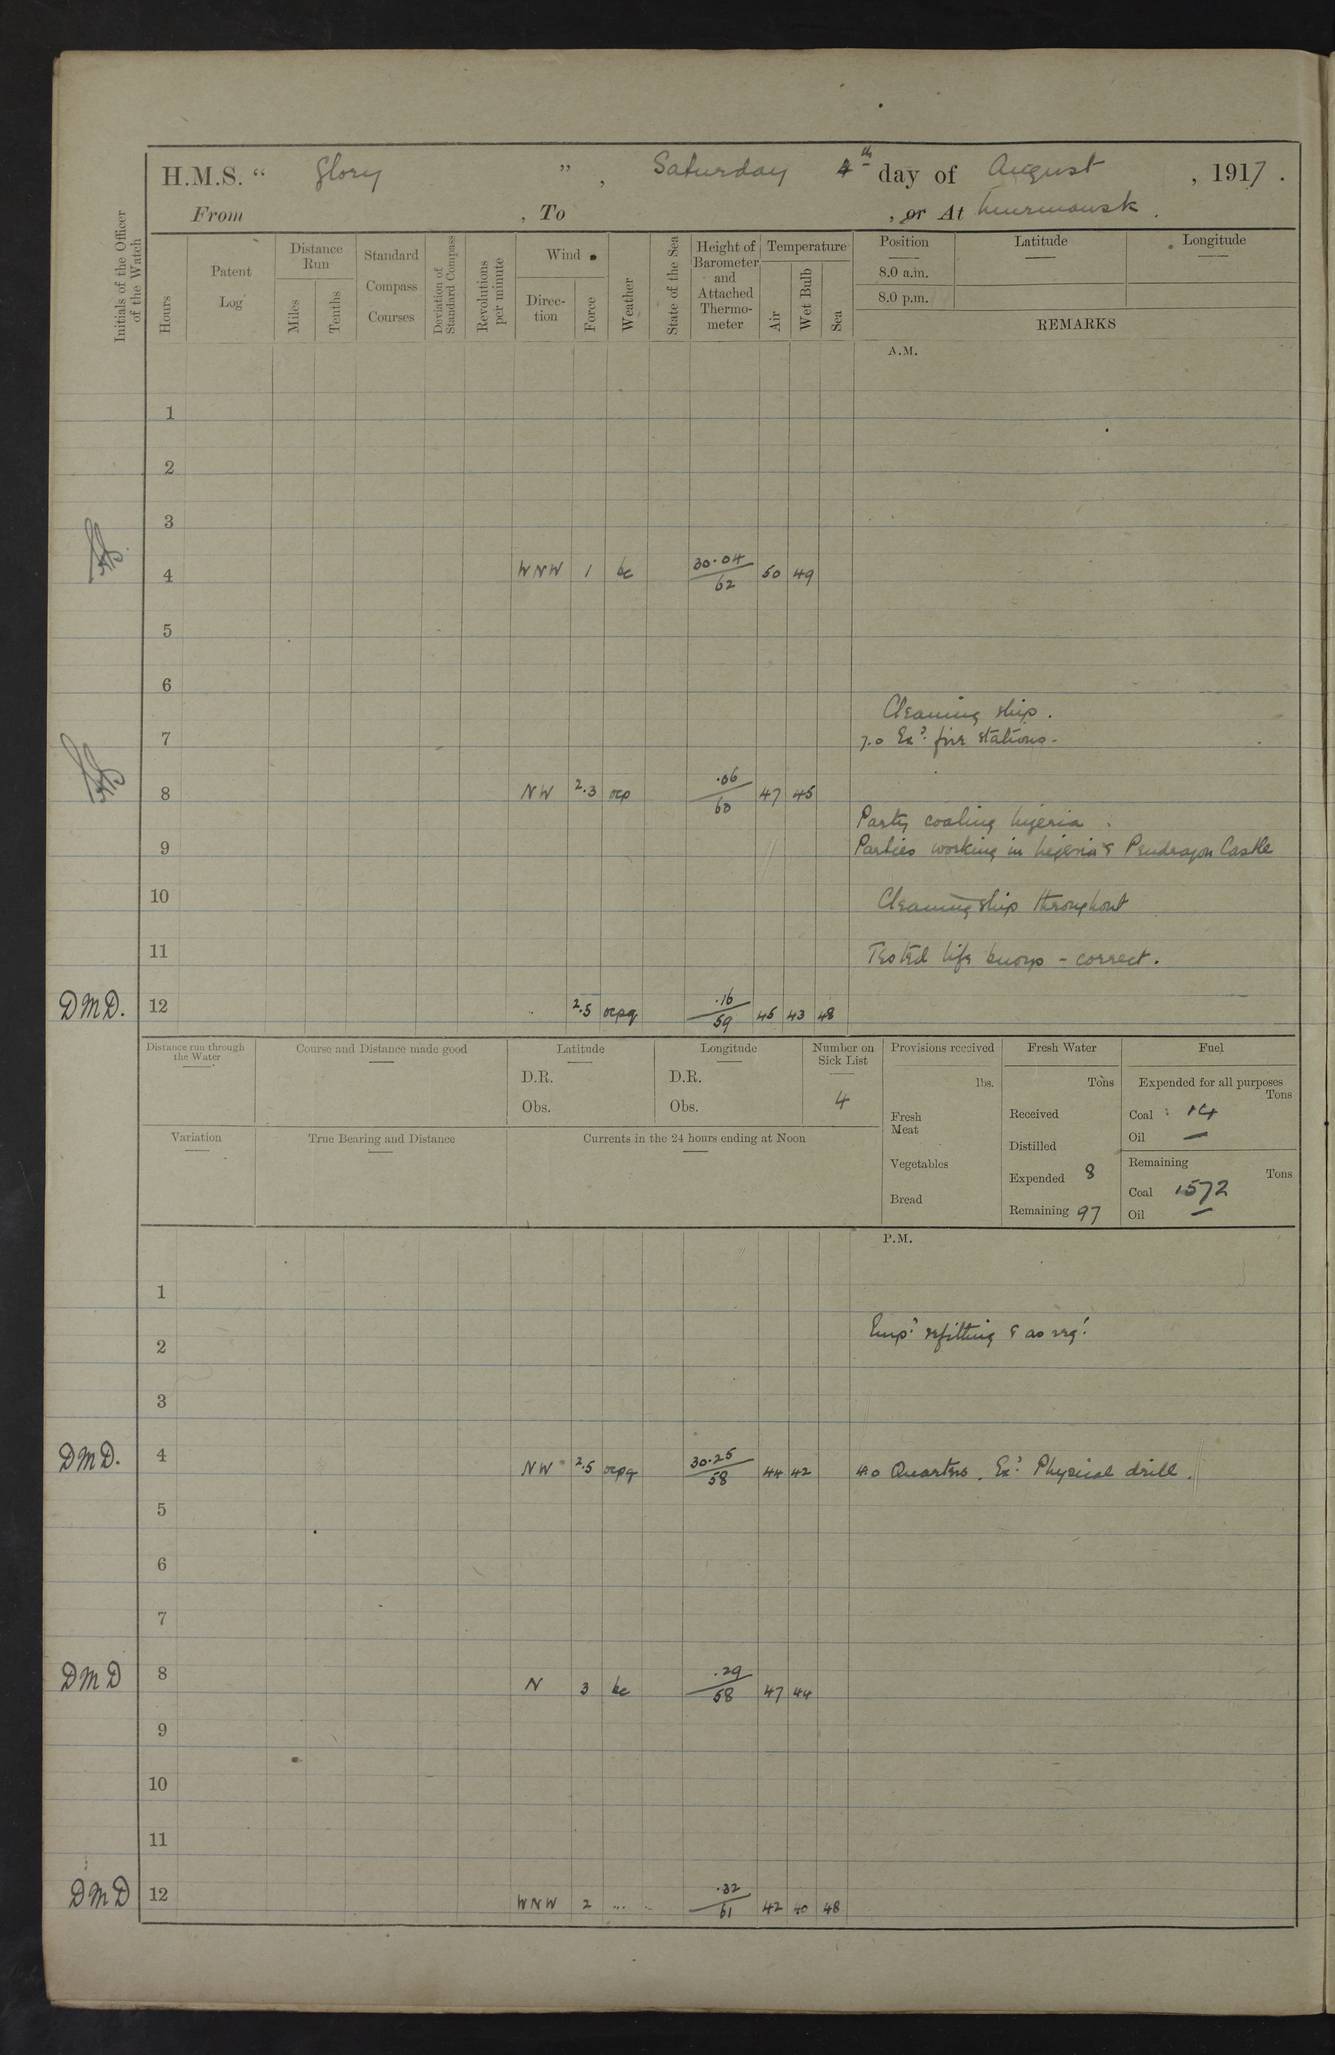 H.M.S. “ Glory ” , Saturday 4th day of August , 1917 .
From , To , or At Murmansk .
Initials of the Officer of the Watch
Hours
Patent Log
Distance Run
Miles
Tenths
Standard Compass Courses
Deviation of Standard Compass
Revolutions per minute
Wind
Direction
Force
Weather
State of the Sea
Height of Barometer and Attached Thermometer
Temperature
Air
Wet Bulb
Sea
Position Latitude Longitude
8.0 a.m.
8.0 p.m.
REMARKS
A.M.
1
2
3
4 WNW 1 bc 30.04/62 50 49
5
6
Cleaning ship .
7 7.0 Exd fire stations -
8 NW 2.3 ocp .06/60 47 45
Party coaling Nigeria .
9 Parties working in Nigeria & Pendragon Castle
10 Cleaning ship throughout
11 Tested life buoys - correct .
DMD. 12 2.5 ocpq .16/59 45 43 48
Distance run through the Water
Course and Distance made good
Latitude
D.R.
Obs.
Longitude
D.R.
Obs.
Number on Sick List
4
Provisions received
lbs.
Fresh Meat
Vegetables
Bread
Fresh Water
Tons
Received
Distilled
Expended 8
Remaining 97
Fuel
Expended for all purposes
Tons
Coal 14
Oil —
Remaining
Tons
Coal 1572
Oil —
Variation
True Bearing and Distance
Currents in the 24 hours ending at Noon
P.M.
1
2 Empd refitting & as reqd
3
DMD. 4 NW 2.5 ocpq 30.25/58 44 42 4.0 Quarters . Exd Physical drill .
5
6
7
DMD 8 N 3 bc .29/58 47 44
9
10
11
DMD 12 WNW 2 ... .32/61 42 40 48